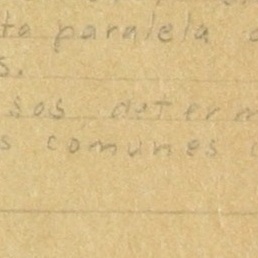 ta paralela
s.
sos determ
s comunes